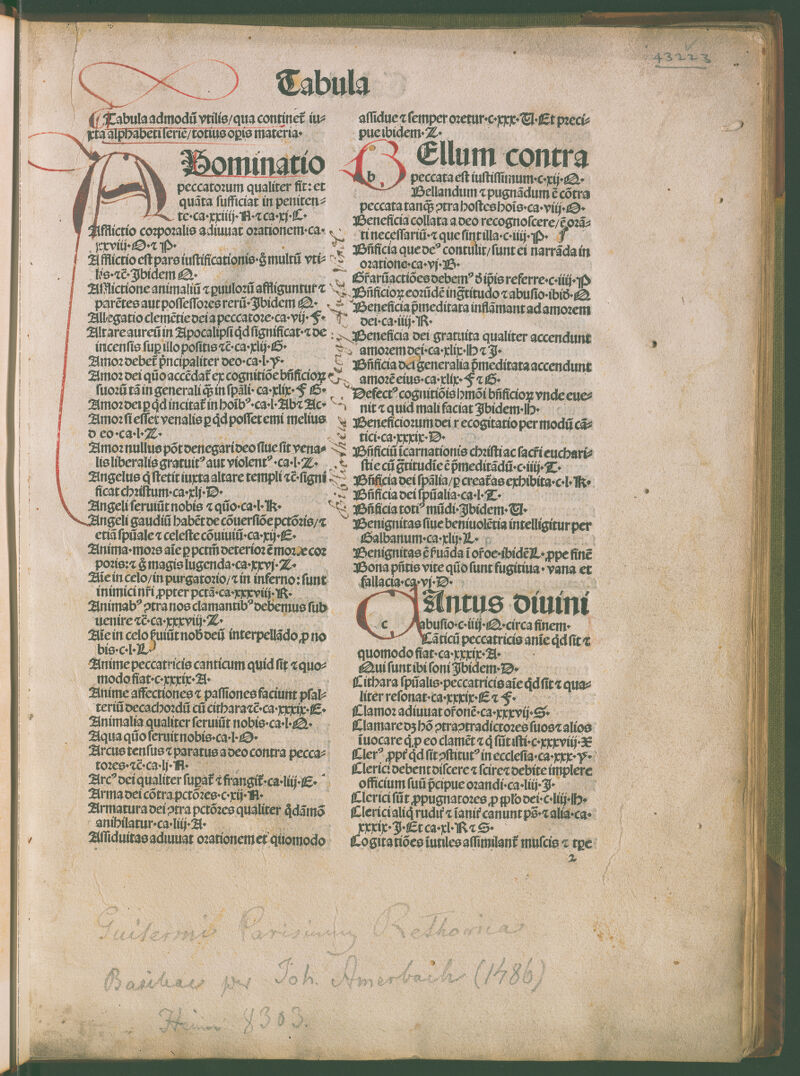 43223
Tabula
Tabula admodū vtilis/qua continet̄ iu-
xta alphabeti seriē/totius op̄is materia.
ABominatio
peccatorum qualiter fit: et
quāta sufficiat in peniten-
te.ca.xxiiij.N.⁊ ca.xj.C.
Afflictio corporalis adiuuat orationem.ca.
xxviij.O.⁊ P.
Afflictio est pars iustificationis.ḡ multū vti-
lis.⁊c̄ Ibidem O.
Afflictione animaliū ⁊ puulorū affliguntur ⁊
parētes aut possessores rerū.Ibidem Q.
Allegatio clemētie dei a peccatore.ca.vij.F.
Altare aureū in Apocalipsi qd̄ significat.⁊ de
incensis sup illo positis ⁊c̄.ca.xlij.G.
Amor debet̄ p̄ncipaliter deo.ca.l.y.
Amor dei quō accēdat̄ ex cognitiōe bn̄ficioꝝ
suorū tā in generali q̄ȝ in spāli.ca.xlix.F G.
Amor dei ꝑ qd̄ incitat̄ in hoībꝰ.ca.l.Ab ⁊ Ac.
Amor si esset venalis ꝑ qd̄ posset emi melius
ꝙ eo.ca.l.Z.
Amor nullus pōt denegari deo siue sit vena-
lis liberalis gratuitꝰ aut violentꝰ.ca.l.Z.
Angelus q̄ stetit iuxta altare templi ⁊c̄ signi
ficat christum.ca.xlj.D.
Angeli seruiūt nobis ⁊ quō.ca.l.K.
Angeli gaudiū habēt de cōuersiōe pctōris/⁊
etiā spūale ⁊ celeste cōuiuiū.ca.xij.E.
Anima.mors aīe ꝑ pctm̄ deterior ē morte cor
poris: ⁊ ḡ magis lugenda.ca.xxvj.Z.
Aīe in celo/in purgatorio/⁊ in inferno: sunt
inimici nr̄i ꝓpter pctā.ca.xxxviij.R.
Animabꝰ ꝯtra nos clamantibꝰ debemus sub
uenire ⁊c̄.ca.xxxviij.Z.
Aīe in celo ẜuiūt nob̄ deū interpellādo ꝓ no
bis.c.l.L.
Anime peccatricis canticum quid sit ⁊ quo-
modo fiat.c.xxxix.A.
Anime affectiones ⁊ passiones faciunt psal-
teriū decachordū cū cithara ⁊c̄.ca.xxxix.E.
Animalia qualiter seruiūt nobis.ca.l.Q.
Aqua quō seruit nobis.ca.l.O.
Arcus tensus ⁊ paratus a deo contra pecca-
tores.⁊c̄.ca.lj.N.
Arcꝰ dei qualiter supat̄ ⁊ frangit̄.ca.liij.E.
Arma dei cōtra pctōres.c.xij.N.
Armatura dei ꝯtra pctōres qualiter q̄dāmō
anihilatur.ca.liij.A.
Assiduitas adiuuat orationem et quomodo
assidue ⁊ semper oretur.c.xxx.U.Et preci-
pue ibidem.Z.
BEllum contra
b
peccata est iustissimum.c.xij.O.
Bellandum ⁊ pugnādum ē cōtra
peccata tanq̄ȝ ꝯtra hostes hoīs.ca.viij.O.
Beneficia collata a deo recognoscere/ē orā-
ti necessariū.⁊ que sint illa.c.iiij.P.
Bn̄ficia que deꝰ contulit/sunt ei narrāda in
oratione.ca.vj.B.
Gr̄arū actiōes debemꝰ ꝑ ip̄is referre.c.iiij.P
Bn̄ficioꝝ eorūdē in ḡtitudo ⁊ abusio.ibid̄.Q
Beneficia p̄meditata inflāmant ad amorem
dei.ca.iiij.R.
Beneficia dei gratuita qualiter accendunt
amorem dei.ca.xlix.H ⁊ I.
Bn̄ficia dei generalia p̄meditata accendunt
amorē eius.ca.xlix.F ⁊ G.
Defectꝰ cognitiōis hmōi bn̄ficioꝝ vnde eue-
nit ⁊ quid mali faciat Ibidem.H.
Beneficiorum dei recogitatio per modū cā-
tici.ca.xxxix.D.
Bn̄ficiū īcarnationis christi ac sacr̄i euchari-
stie cū ḡtitudīe ē p̄meditādū.c.iiij.T.
Bn̄ficia dei spālia/ꝑ creat̄as exhibita.c.l.K.
Bn̄ficia dei spūalia.ca.l.T.
Bn̄ficia totiꝰ mūdi.Ibidem.U.
Benignitas siue beniuolētia intelligitur per
Galbanum.ca.xlij.L.
Benignitas ē fūāda ī or̄oe.ibidē L.ꝓpe finē
Bona pn̄tis vite quō sunt fugitiua.vana et
fallacia.ca.vj.D.
CAntus diuini
c
abusio.c.iiij.Q.circa finem.
Cāticū peccatricis anīe qd̄ sit ⁊
quomodo fiat.ca.xxxix.A.
Qui sunt ibi soni Ibidem.D.
Cithara spūalis.peccatricis aīe qd̄ sit ⁊ qua-
liter resonat.ca.xxxix.E ⁊ F.
Clamor adiuuat or̄onē.ca.xxxvij.S.
Clamare dȝ hō ꝯtra ꝯtradictores suos ⁊ alios
īuocare q̄ ꝓ eo clamēt ⁊ q̄ sūt isti.c.xxxviij.X
Clerꝰ ꝓpt̄ qd̄ sit ꝯstitutꝰ in ecclesia.ca.xxx.y.
Clerici debent discere ⁊ scire ⁊ debite implere
officium suū p̄cipue orandi.ca.liij.I.
Clerici sūt ꝓpugnatores ꝓ ppl̄o dei.c.liij.H.
Clerici aliq̄ rudit̄ ⁊ īanit̄ canunt pṡ.⁊ alia.ca.
xxxix.I.Et ca.xl.R ⁊ S.
Cogitatiōes īutiles assimilant̄ muscis ⁊ tꝑe
2
Guilermi Parisiensis Rethorica
Basileae per Joh. Amerbach (1486)
Hain 8303.